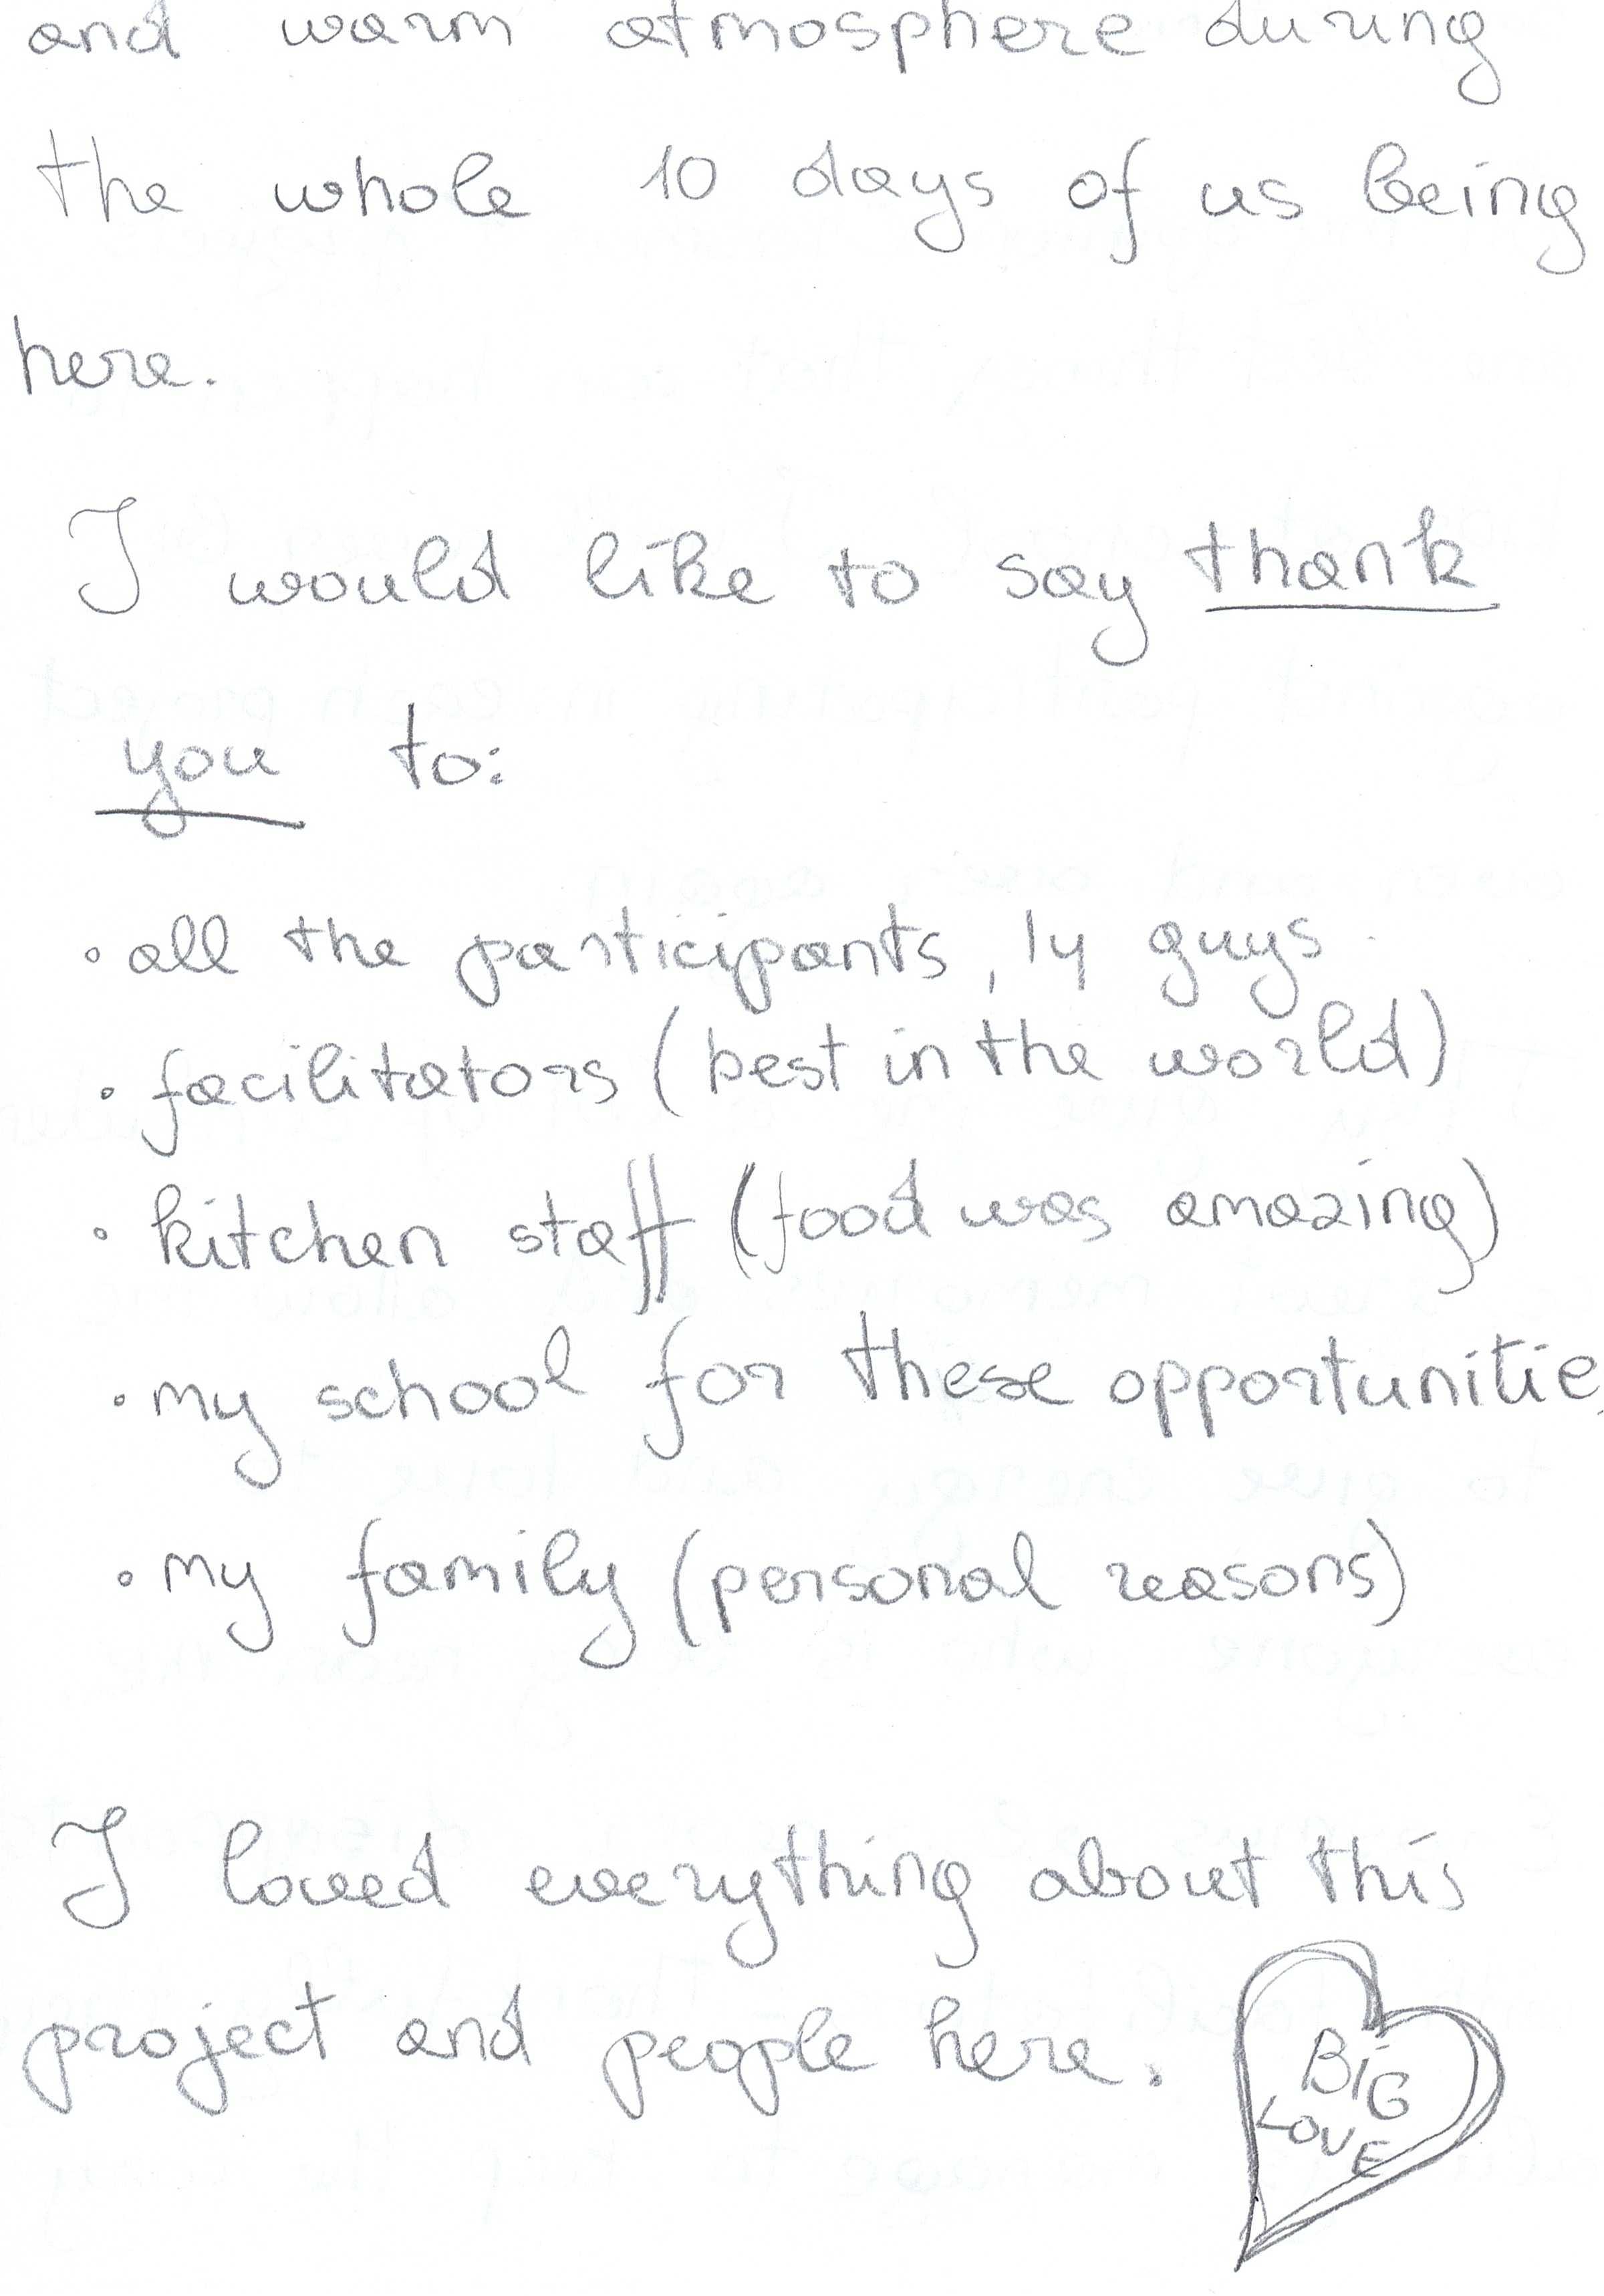 and warm atmosphere during
the whole 10 days of us being
here.
I would like to say thank
you to:
• all the participants, 14 guys.
• facilitators (best in the world)
• kitchen staff (food was amazing)
• my school for these opportunitie
• my family (personal reasons)
I loved everything about this
project and people here.
BIG
LOVE